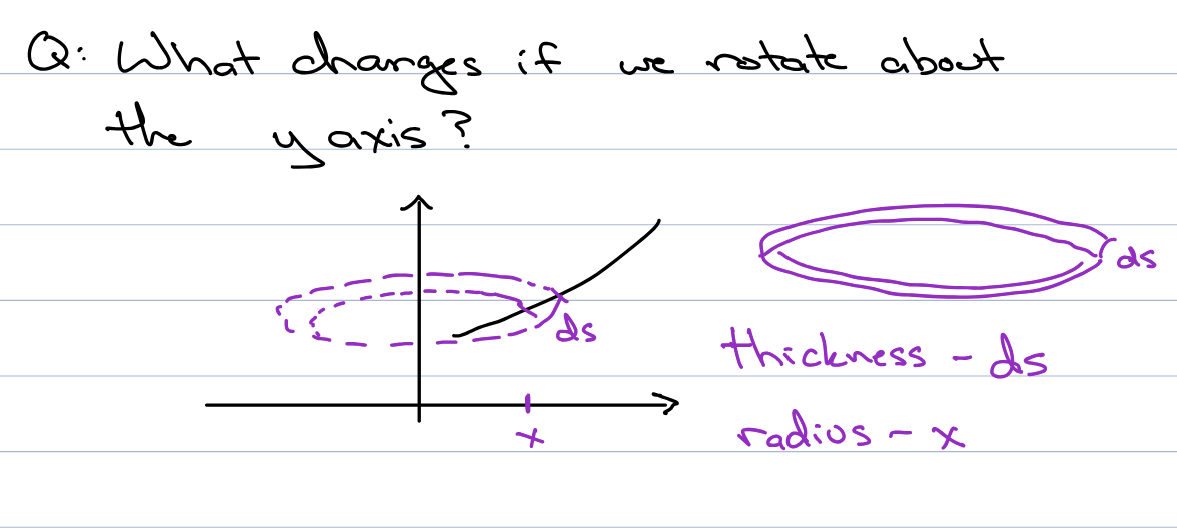 Q: What changes if we rotate about
the y axis?
ds
x
ds
thickness - ds
radius - x